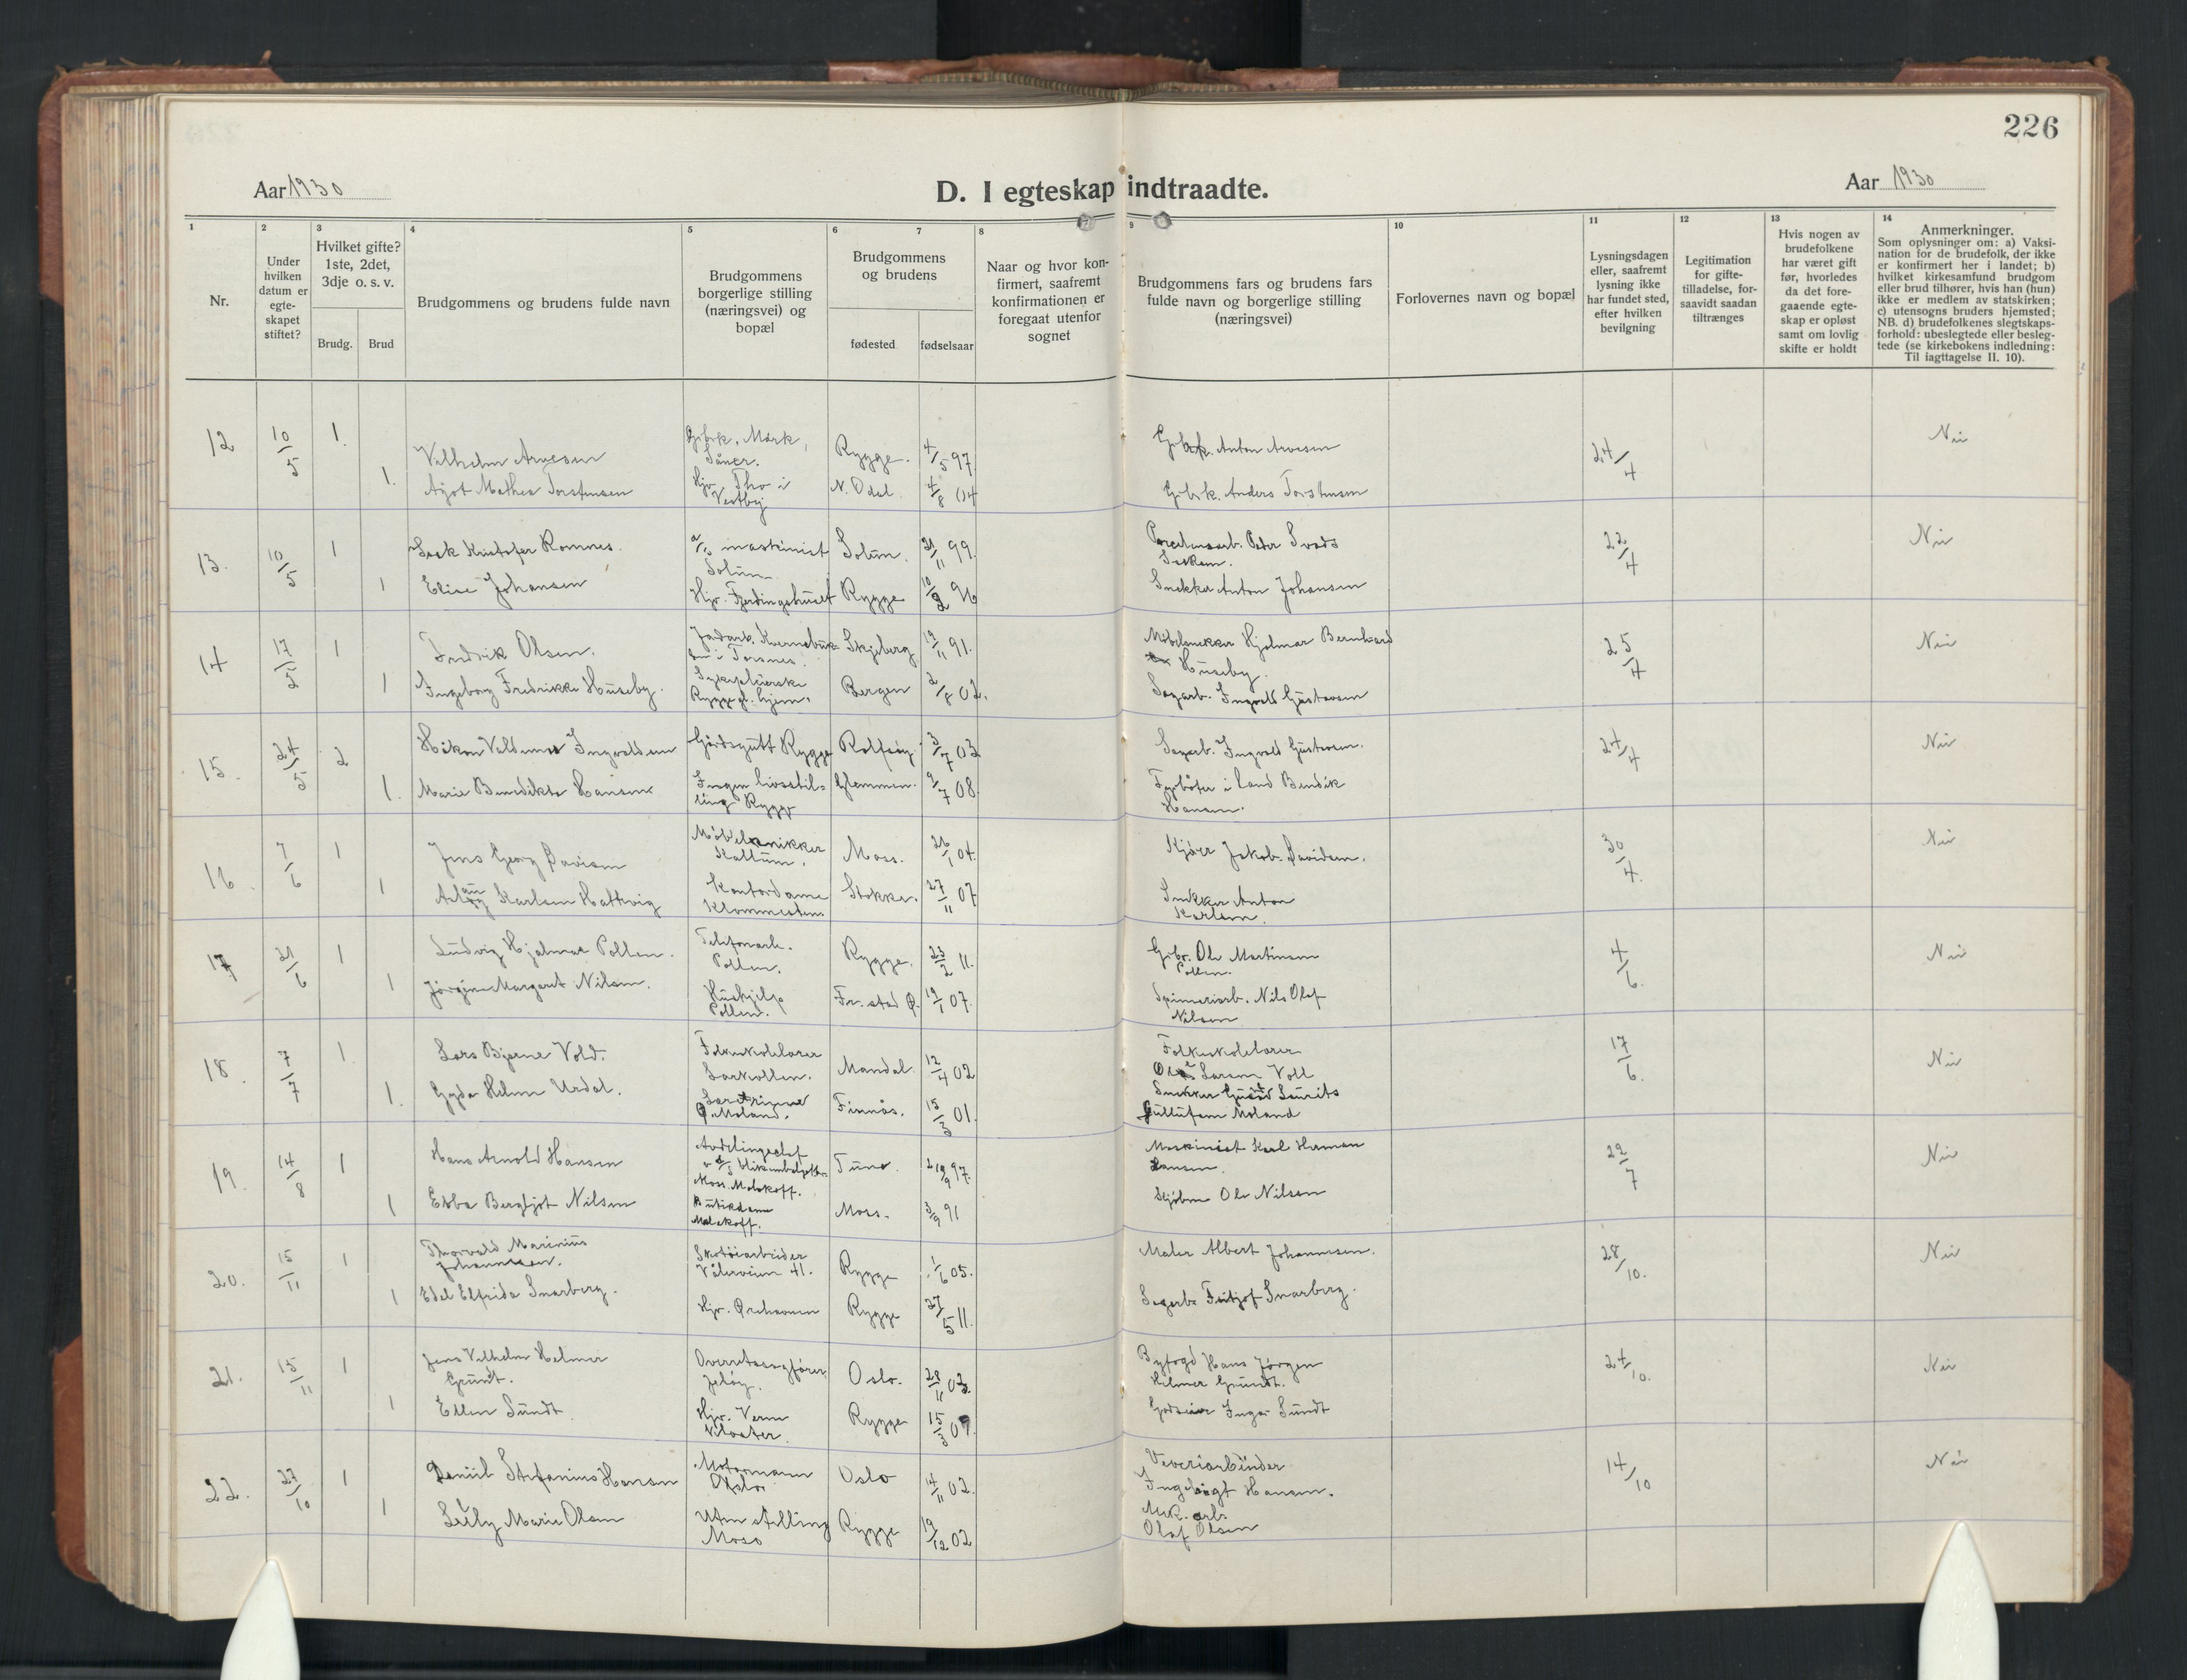 226
Aar 1930
D. I egteskap indtraadte.
Aar 1930
1 2 3 4 5 6 7 8 9 10 11 12 13 14
Nr.
Under
hvilken
datum er
egte-
skapet
stiftet?
Hvilket gifte?
1ste, 2det,
3dje o. s. v.
Brudg. Brud
Brudgommens og brudens fulde navn
Brudgommens
borgerlige stilling
(næringsvei) og
bopæl
Brudgommens
og brudens
fødested fødselsaar
Naar og hvor kon-
firmert, saafremt
konfirmationen er
foregaat utenfor
sognet
Brudgommens fars og brudens fars
fulde navn og borgerlige stilling
(næringsvei)
Forlovernes navn og bopæl
Lysningsdagen
eller, saafremt
lysning ikke
har fundet sted,
efter hvilken
bevilgning
Legitimation
for gifte-
tilladelse, for-
saavidt saadan
tiltrænges
Hvis nogen av
brudefolkene
har været gift
før, hvorledes
da det fore-
gaaende egte-
skap er opløst
samt om lovlig
skifte er holdt
Anmerkninger.
Som oplysninger om: a) Vaksi-
nation for de brudefolk, der ikke
er konfirmert her i landet; b)
hvilket kirkesamfund brudgom
eller brud tilhører, hvis han (hun)
ikke er medlem av statskirken;
c) utensogns bruders hjemsted;
NB. d) brudefolkenes slegtskaps-
forhold: ubeslegtede eller besleg-
tede (se kirkebokens indledning:
Til iagttagelse II. 10).
12 10/5 1.
Vilhelm Arvesen Grbrk. Mørk, Såner. Rygge. 4/5 97 Grbrk. Anton Arvesen 24/4 Nei
1. Ågot Mathea Torstensen Hjv. Tho i Vestby N. Odal 4/8 04 Grbrk. Anders Torstensen
13. 10/5 1 Isak Kristofer Romnes. maskinist Solum Solum. 21/11 99. Peder 22/4 Nei
1 Elise Johansen Hjv. Fjerdingshuset Rygge 10/2 96 Snekker Anton Johansen
14 17/5 1 Fredrik Olsen. i Torsnes. Skjeberg 19/11 91. Møbelsnekker Hjalmar Bernhard Huseby. 25/4 Nei
1 Ingeborg Fredrikke Huseby. Sykepleierske Rygge gl. hjem. Bergen 2/8 02. Sagarb. Ingvald Gustavsen
15. 24/5 2 Håkon Valdemar Ingvaldsen Gårdsgutt Rygge Rolfsøy 3/7 03 Sagarb. Ingvald Gustavsen. 24/4 Nei
1. Marie Benedikte Hansen Ingen livsstil=ling Rygge Glemmen. 9/7 08. Fyrbøter i land Bendik Hansen.
16. 7/6 1 Jens Georg Davidsen Møbelsnikker Kallum. Moss. 26/1 04. Kjører Jakob Davidsen. 30/4. Nei
1 Aslaug Karlsen Hattvig Kontordame Klommesten Stokke. 27/11 07 Snekker Anton Karlsen.
17 21/6 1 Ludvig Hjalmar Pollen. Telefonarb. Pollen. Rygge. 23/2 11. Grbr. Ole Martinsen Pollen. 4/6. Nei
1 Jørgine Margaret Nilsen. Hushjelp Pollen. Fr.stad Ø. 19/1 07. Spinneriarb. Nils Olaf Nilsen
18. 7/7 1. Lars Bjarne Vold. Folkeskolelærer Larkollen. Mandal. 12/4 02 Folkeskolelærer Larsen Voll 17/6. Nei
1. Gyda Helene Urdal. Lærerinne Ø. Moland. Finnås. 15/3 01. Snekker Laurits Moland
19. 14/8 1 Hans Arnold Hansen Avdelingschef Moss. Malakoff. Tune. 29/9 97. Maskinist Karl Herman Hansen. 22/7 Nei
1 Ebba Bergljot Nilsen Butikdame Malakoff. Moss. 3/9 91 Ole Nilsen
20. 15/11 1 Thorvald Marinius Johannesen. Skotøiarbeider Vålerveien 41. Rygge 1/6 05. Maler Albert Johannesen. 28/10. Nei
1 Edel Elfrida Snarberg. Hjv. Ørehavnen Rygge 27/5 11. Sagarb. Fritjof Snarberg.
21. 15/11 1 Jens Vilhelm Helmer Grundt. Overretssagfører, Jeløy. Oslo. 28/11 02. Byfogd Hans Jørgen Helmer Grundt. 24/10. Nei
1 Ellen Sundt Hjv. Verne Kloster. Rygge 15/3 09. Godseier Inga Sundt
22. 27/10 1 Daniil Stefanius Hansen Motormann Oslo Oslo 14/11 02. Veveriarbeider Hansen. 14/10 Nei
1 Lelly Marie Olsen Uten stilling Moss Rygge 19/12 02 Mek. arb. Olaf Olsen